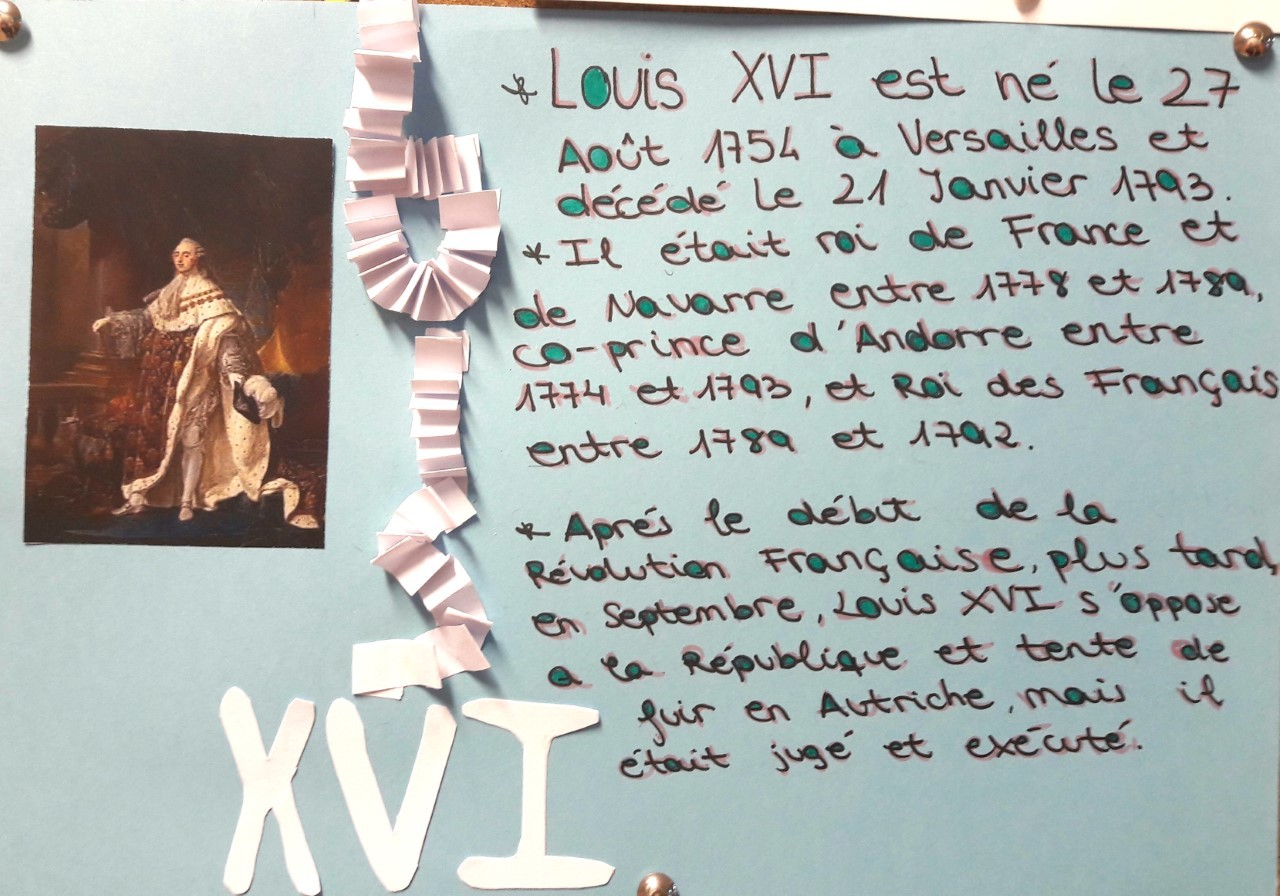 * Louis XVI est né le 27
Août 1754 à Versailles et
décédé le 21 Janvier 1793.
* Il était roi de France et
de Navarre entre 1778 et 1789,
co-prince d'Andorre entre
1774 et 1793, et Roi des Français
entre 1789 et 1792.
* Aprés le début de la
Révolution Française, plus tard,
en Septembre, Louis XVI s'oppose
a la République et tente de
fuir en Autriche, mais il
était jugé et exécuté.
Louis
XVI